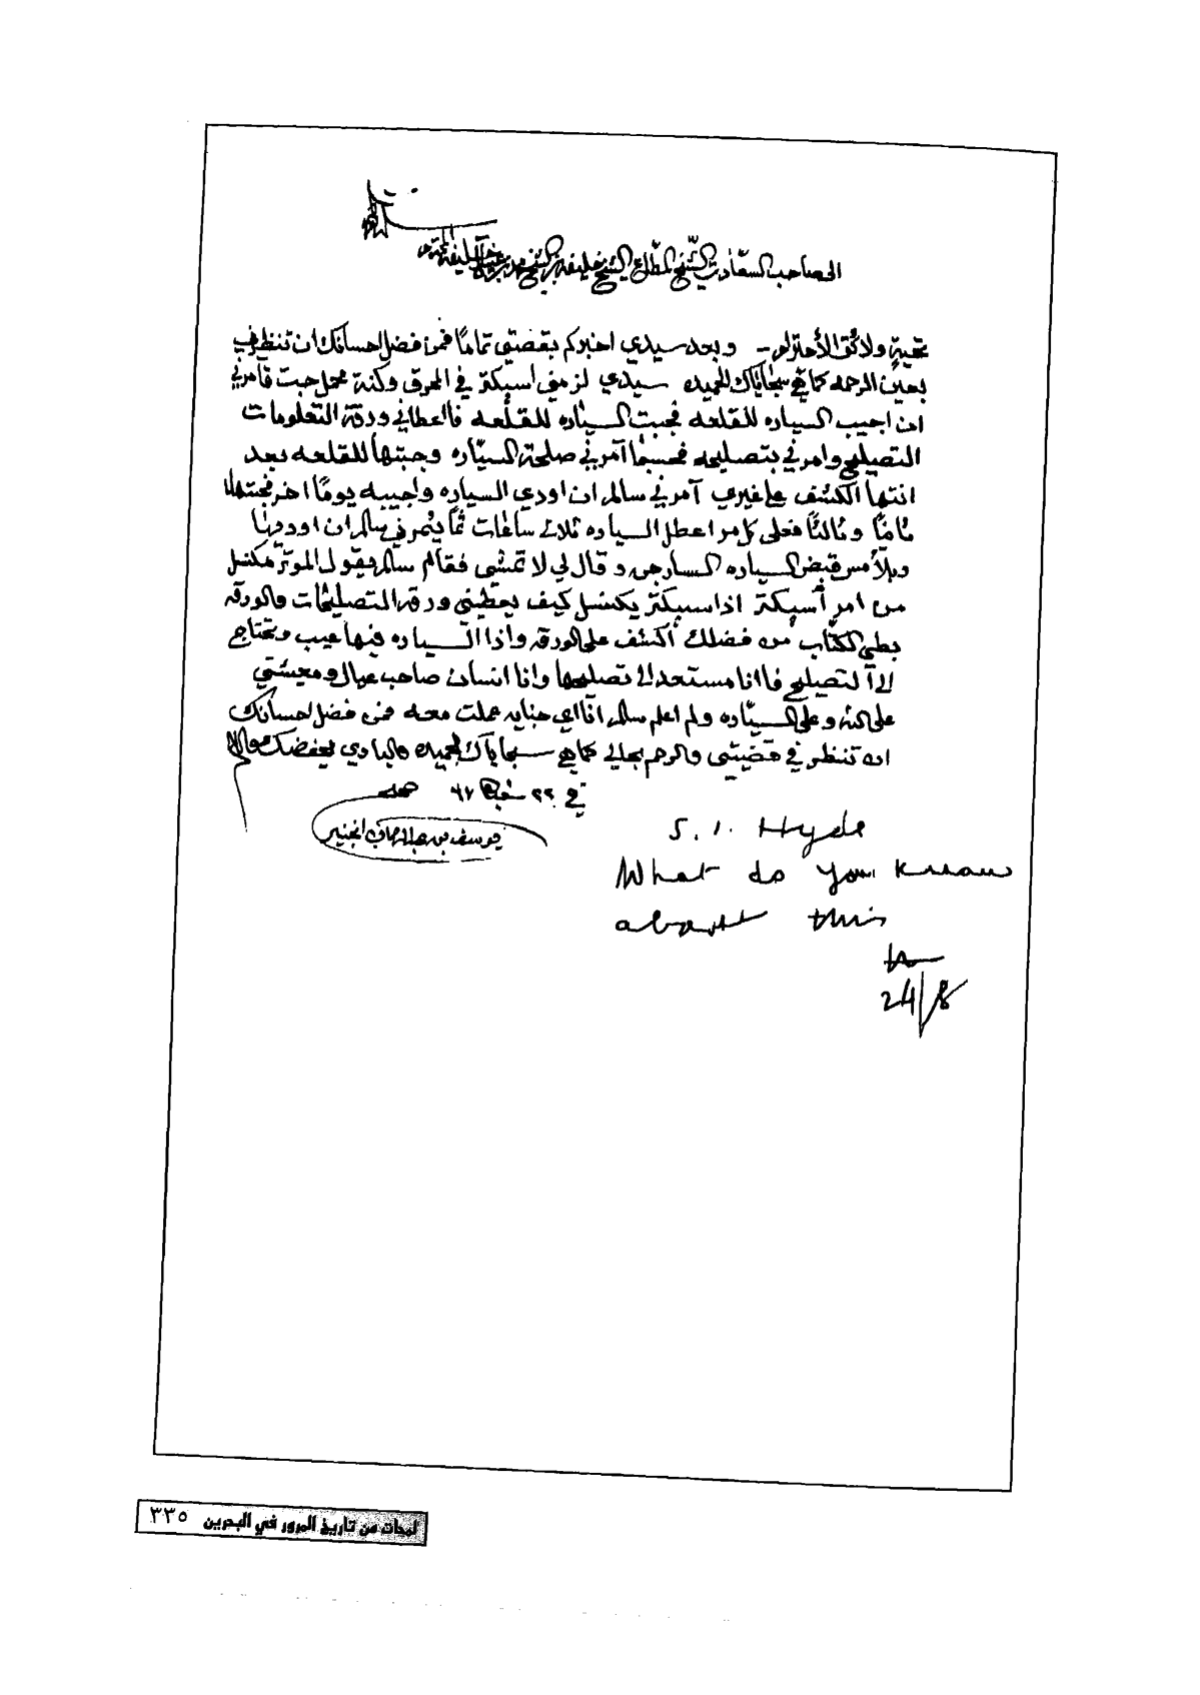 الى صاحب السعادت الشيخ المطاع الشيخ خليفة بن الشيخ محمد بن
تحية ولائق الأحترام - وبعد سيدي اخبركم بقصتي تمامًا فمن فضل احسانك ان تنظر في
بعين الرحمه كما هي سجاياك الحميده سيدي لزمني اسبكتر في المحرق وكنة محمل جبت فآمرني
ان اجيب السياره للقلعه فجبت السياره للقلعه فاالعطاني ورقة التعلومات
التصيليح وامرني بتصليحه فحسبما آمرني صلحة السيّاره وجبتها للقلعه بعد
انتها الكشف على غيري آمرني سالم ان اودي السياره واجيبه يومًا اخر فجبتها
ثامنًا وثالثًا فعلى كل مر اعطل السياره ثلاث ساعات ثما يئمرني سالم ان اوديها
وبلآمس قبض السياره السارجن وقال لي لا تمشي فقام سالم يقول الموتر مكنسل
من امر أسبكتر اذا اسبكتر يكنسل كيف يعطيني ورقة التصليحات والورقه
بطي الكتاب من فضلك أكشف على الورقه واذا السياره فيها عيب وتحتاج
الى آلتصليح فاانا مستعد الى تصليحها وانا انسان صاحب عيال ومعيشتي
على الله وعلى السيّاره ولم اعلم سالم انا اي جنايه عملت معه فمن فضل احسانك
ان تنظر في قضيتي والرحم بحالي كما هي سجاياك الحميده والباري يحفضك
في ٢٢ شعبان ٦٧
يوسف بن عبدالرحمان
S. I. Hyde
What do you know
about this
24/8
لمحات من تاريخ المرور في البحرين ٣٣٥